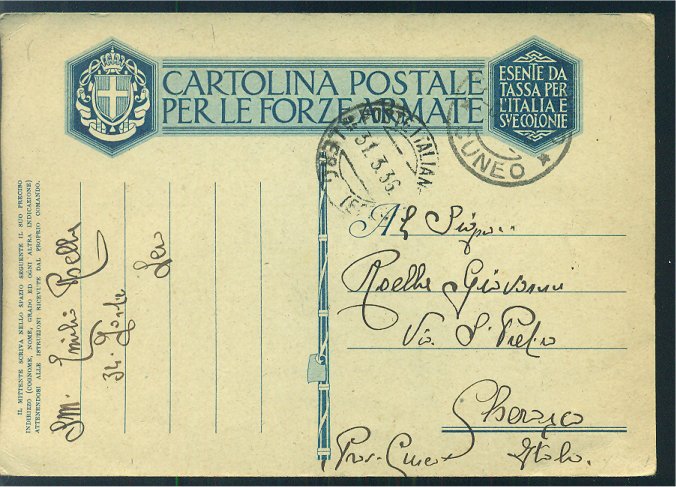 CARTOLINA POSTALE
PER LE FORZE ARMATE
ESENTE DA
TASSA PER
L'ITALIA E
SVE COLONIE
POSTE ITALIANE
31.3.36
CUNEO
IL MITTENTE SCRIVA NELLO SPAZIO SEGUENTE IL SUO PRECISO
INDIRIZZO (COGNOME, NOME, GRADO ED OGNI ALTRA INDICAZIONE)
ATTENENDOSI ALLE ISTRUZIONI RICEVUTE DAL PROPRIO COMANDO.
Emilio Roella
34.
Al Signor
Roella Giovanni
Via S. Pietro
Cherasco
Prov. Cuneo Italia.